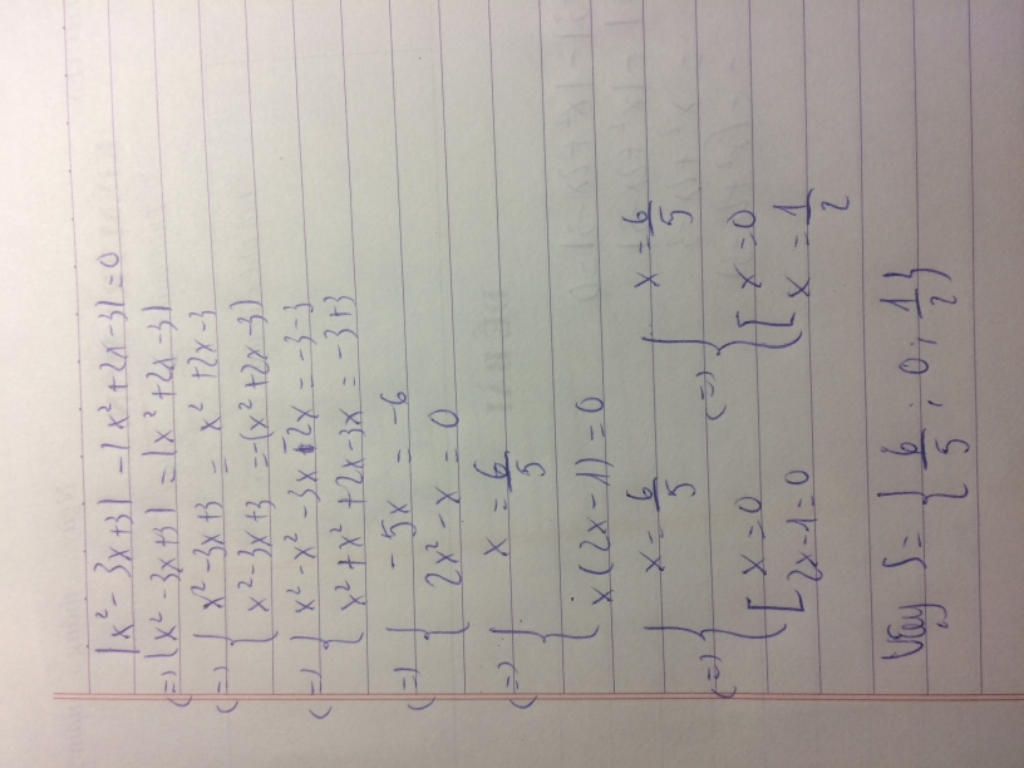 |x² - 3x+3| - |x² +2x -3| = 0
(=) |x² - 3x+3| = |x² +2x -3|
(=) { x² - 3x+3 = x² +2x -3
{ x² - 3x+3 = -(x² +2x -3)
(=) { x² - x² - 3x - 2x = -3 -3
{ x² + x² +2x -3x = -3+3
(=) { -5x = -6
{ 2x² - x = 0
(=) { x = 6/5
{ x(2x -1) = 0
(=) { x = 6/5 (=) { x = 6/5
{ [ x = 0 { [ x = 0
[ 2x -1 = 0 [ x = 1/2
Vậy S = { 6/5 ; 0 ; 1/2 }